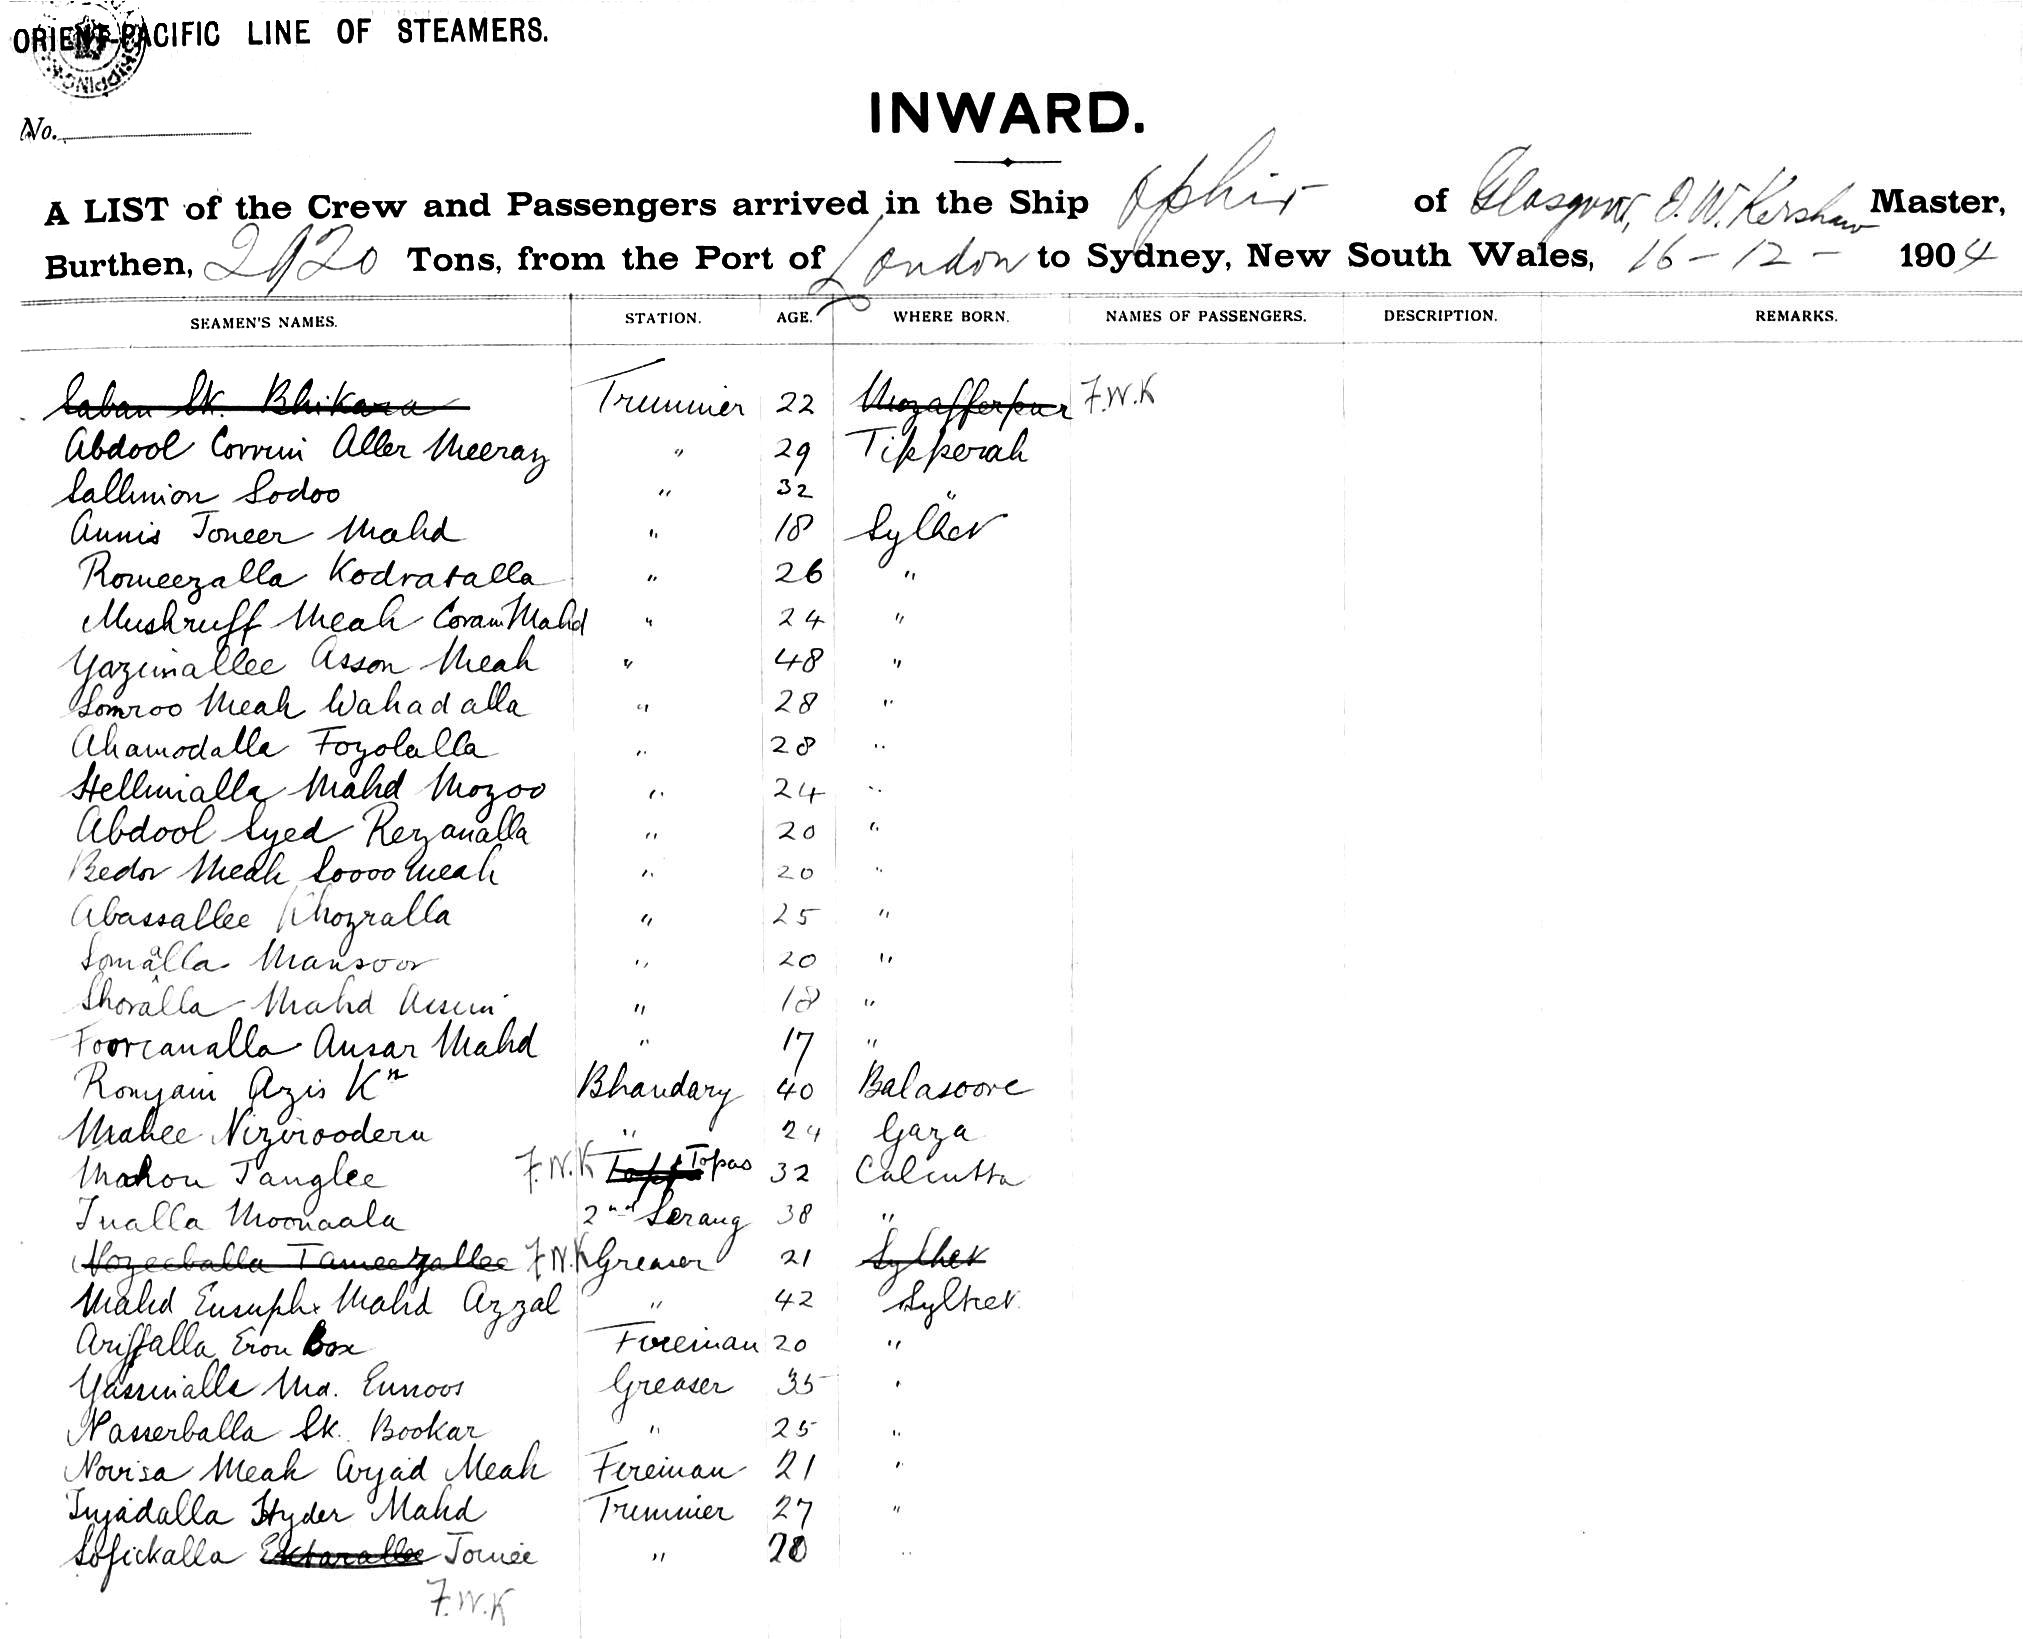 ORIENT-PACIFIC LINE OF STEAMERS.
SHIPPING
No.
INWARD.
A LIST of the Crew and Passengers arrived in the Ship Ophir of Glasgow, F. W. Kershaw Master,
Burthen, 2920 Tons, from the Port of London to Sydney, New South Wales, 16-12-1904
SEAMEN'S NAMES. STATION. AGE. WHERE BORN. NAMES OF PASSENGERS. DESCRIPTION. REMARKS.
Saban Sk. Bhikara Trimmer 22 Mozafferpur F.W.K
Abdool Corrim Aller Meeray " 29 Tipperah
Sallimon Sodoo " 32 "
Annis Toneer Mahd " 18 Sylhet
Romeezalla Kodratalla " 26 "
Mushruff Meah Coram Mahd " 24 "
Yazimallee Asson Meah " 48 "
Somroo Meah Wahadalla " 28 "
Ahamodalla Foyolalla " 28 "
Stellimalla Mahd Mozoo " 24 "
Abdool Syed Rezanalla " 20 "
Bedor Meah Soooo Meah " 20 "
Abassallee Khozralla " 25 "
Somalla Mansoor " 20 "
Shoralla Mahd Assim " 18 "
Foorcanalla Ansar Mahd " 17 "
Romjam Azis Kn Bhandary 40 Balasoore
Mahee Niziroodern " 24 Gaza
Mahou Tanglee F.W.K Topas 32 Calcutta
Inalla Moonaala 2nd Serang 38 "
Nozeeballa Tameezallee F.W.K Greaser 21 Sylhet
Mahd Eusuph Mahd Azzal " 42 Sylhet
Ariffalla Eron Box Fireman 20 "
Yassinalla Md. Eunoos Greaser 35 "
Nasserballa Sk. Bookar " 25 "
Novisa Meah Aryad Meah Fireman 21 "
Injadalla Hyder Mahd Trimmer 27 "
Sofickalla Ektarallee Tomee " 20 "
F.W.K